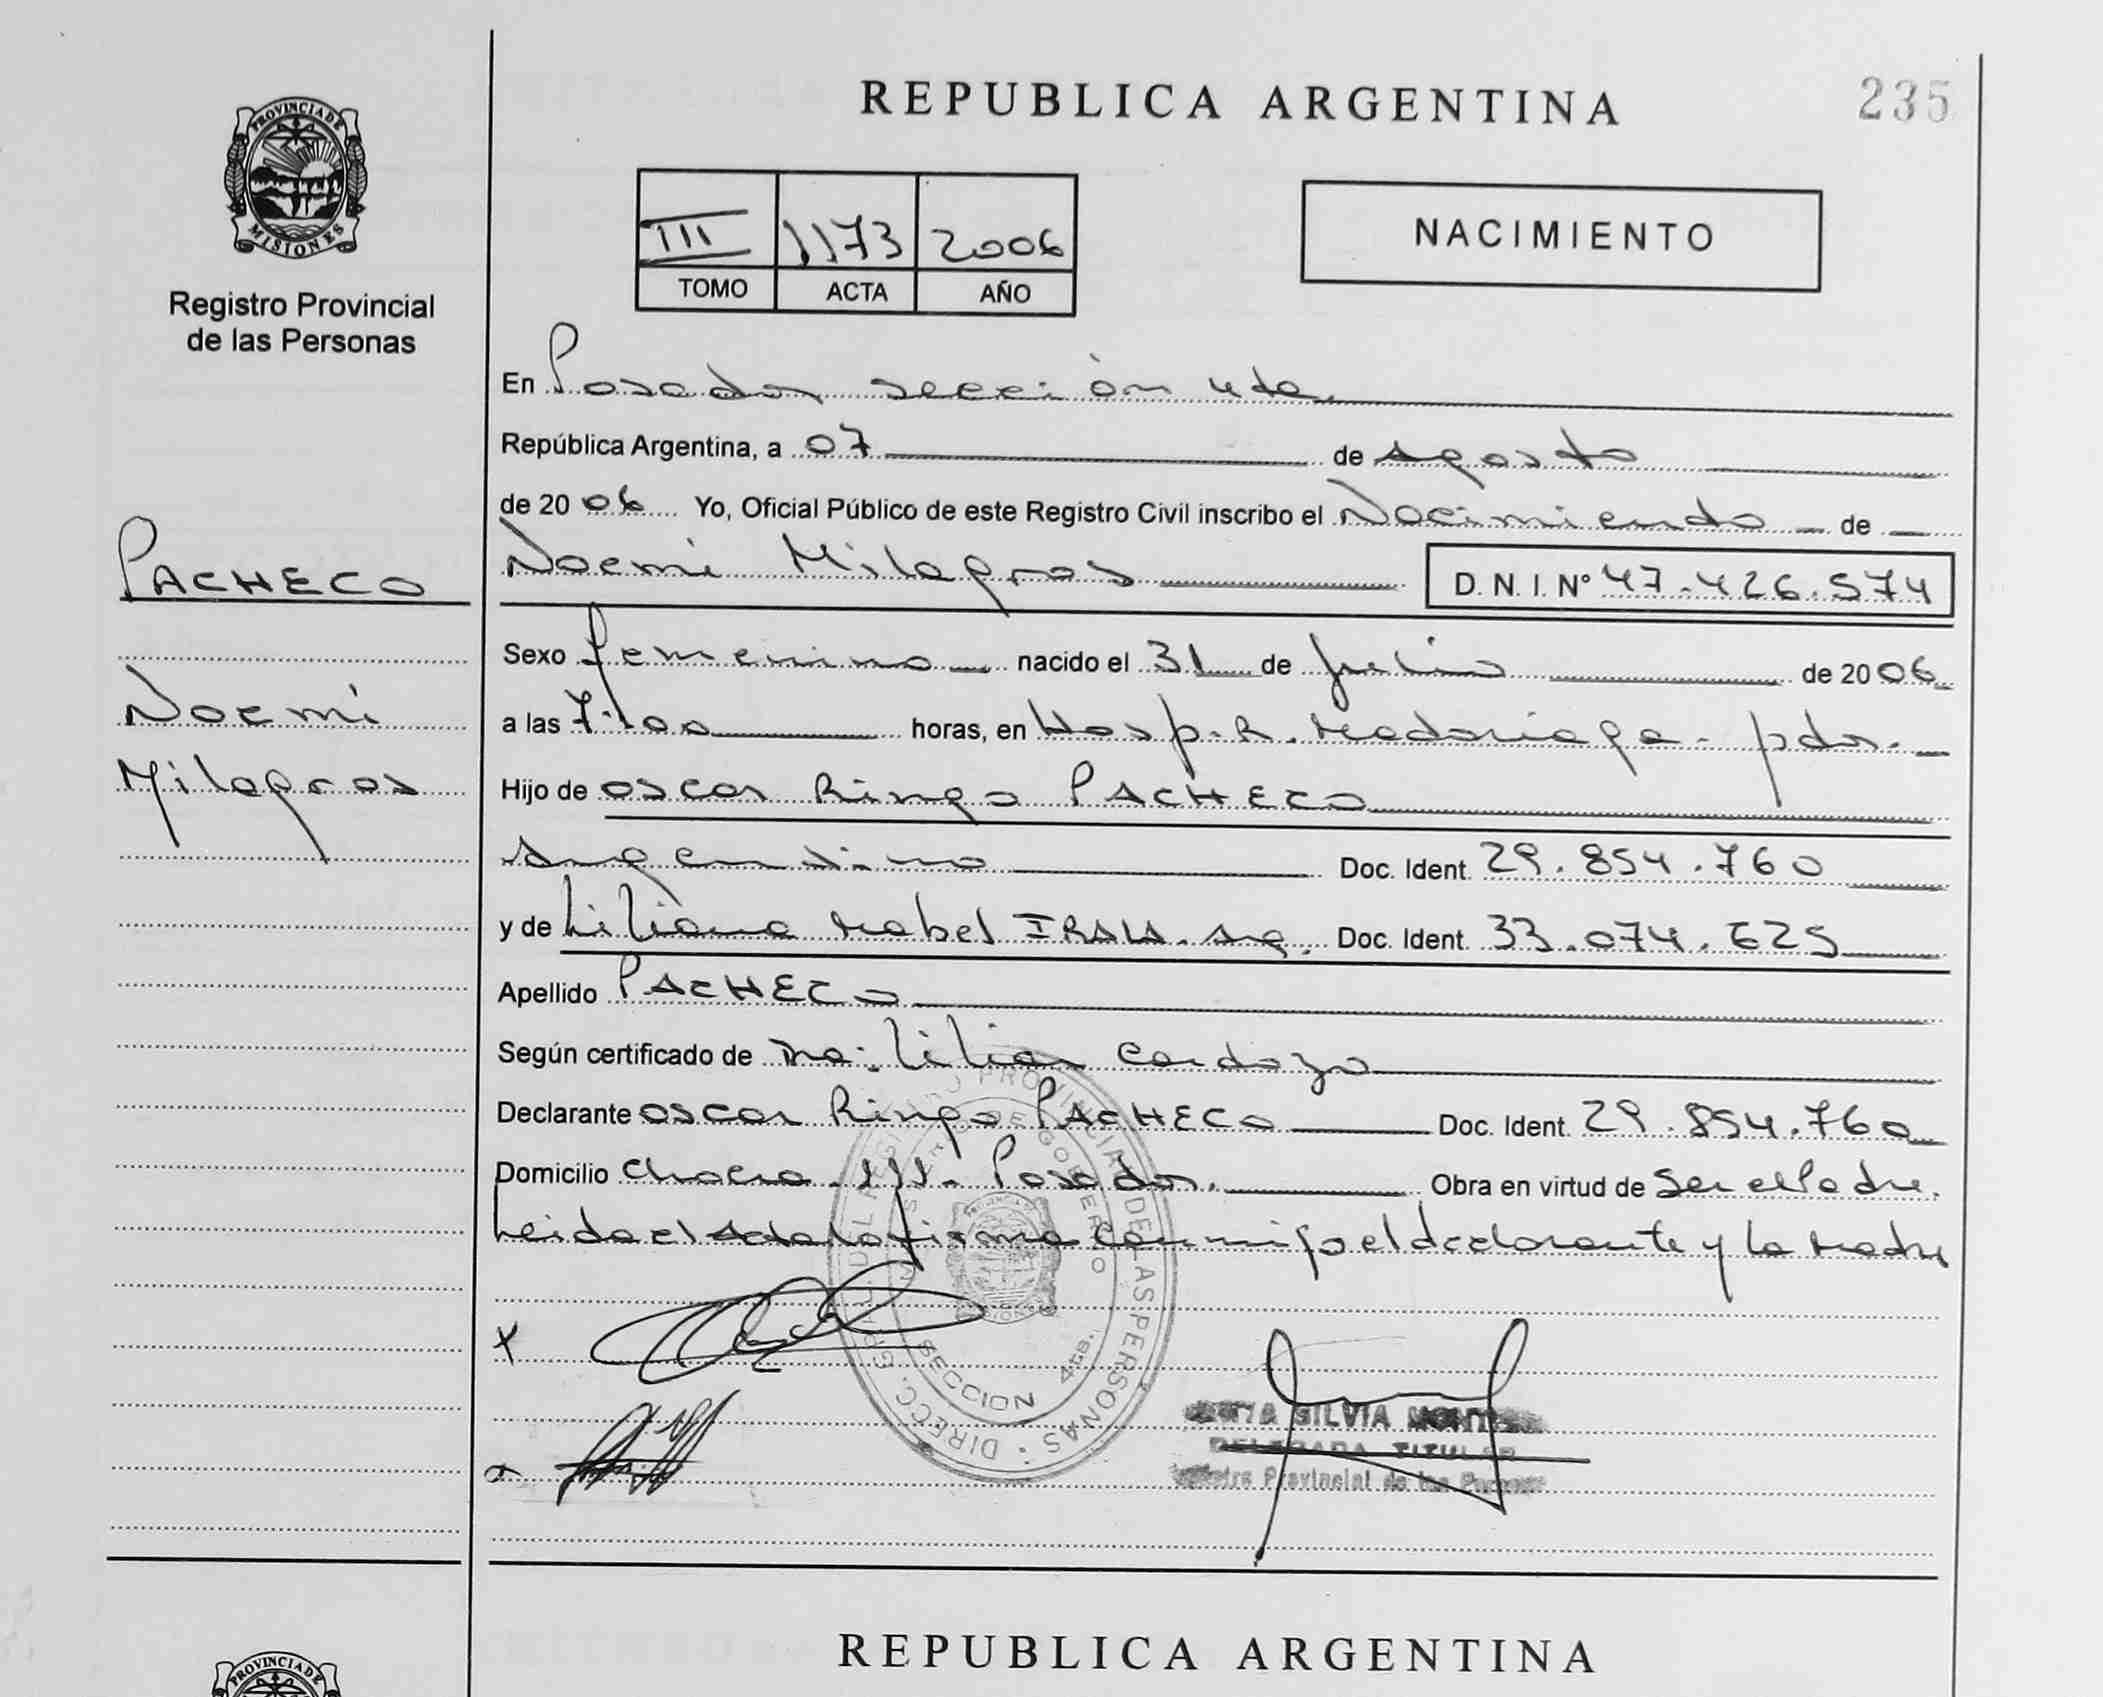 REPUBLICA ARGENTINA
235
PROVINCIA DE
MISIONES
Registro Provincial
de las Personas
III 1173 2006
TOMO ACTA AÑO
NACIMIENTO
En Posadas sección 4ta.
República Argentina, a 07 de agosto
de 2006 Yo, Oficial Público de este Registro Civil inscribo el Nacimiento de
PACHECO
Noemi Milagros D. N. I. N° 47.426.574
Sexo femenino nacido el 31 de julio de 2006
Noemi
a las 7:00 horas, en Hosp. R. Madariaga - pdas.
Milagros
Hijo de Oscar Ringo PACHECO
Argentino Doc. Ident. 29.854.760
y de Liliana Mabel IRALA. Arg. Doc. Ident. 33.074.625
Apellido PACHECO
Según certificado de Dra: Lilian Cardozo
Declarante Oscar Ringo PACHECO Doc. Ident. 29.854.760
Domicilio Chacra 111. Posadas. Obra en virtud de Ser el Padre.
Leida el Acta la firma conmigo el declarante y la Madre
DIRECC. GRAL. DEL REGISTRO PROVINCIAL DE LAS PERSONAS
DE GOBIERNO
SECCION 4ta.
SILVIA
DELEGADA TITULAR
Registro Provincial de las Personas
REPUBLICA ARGENTINA
PROVINCIA DE